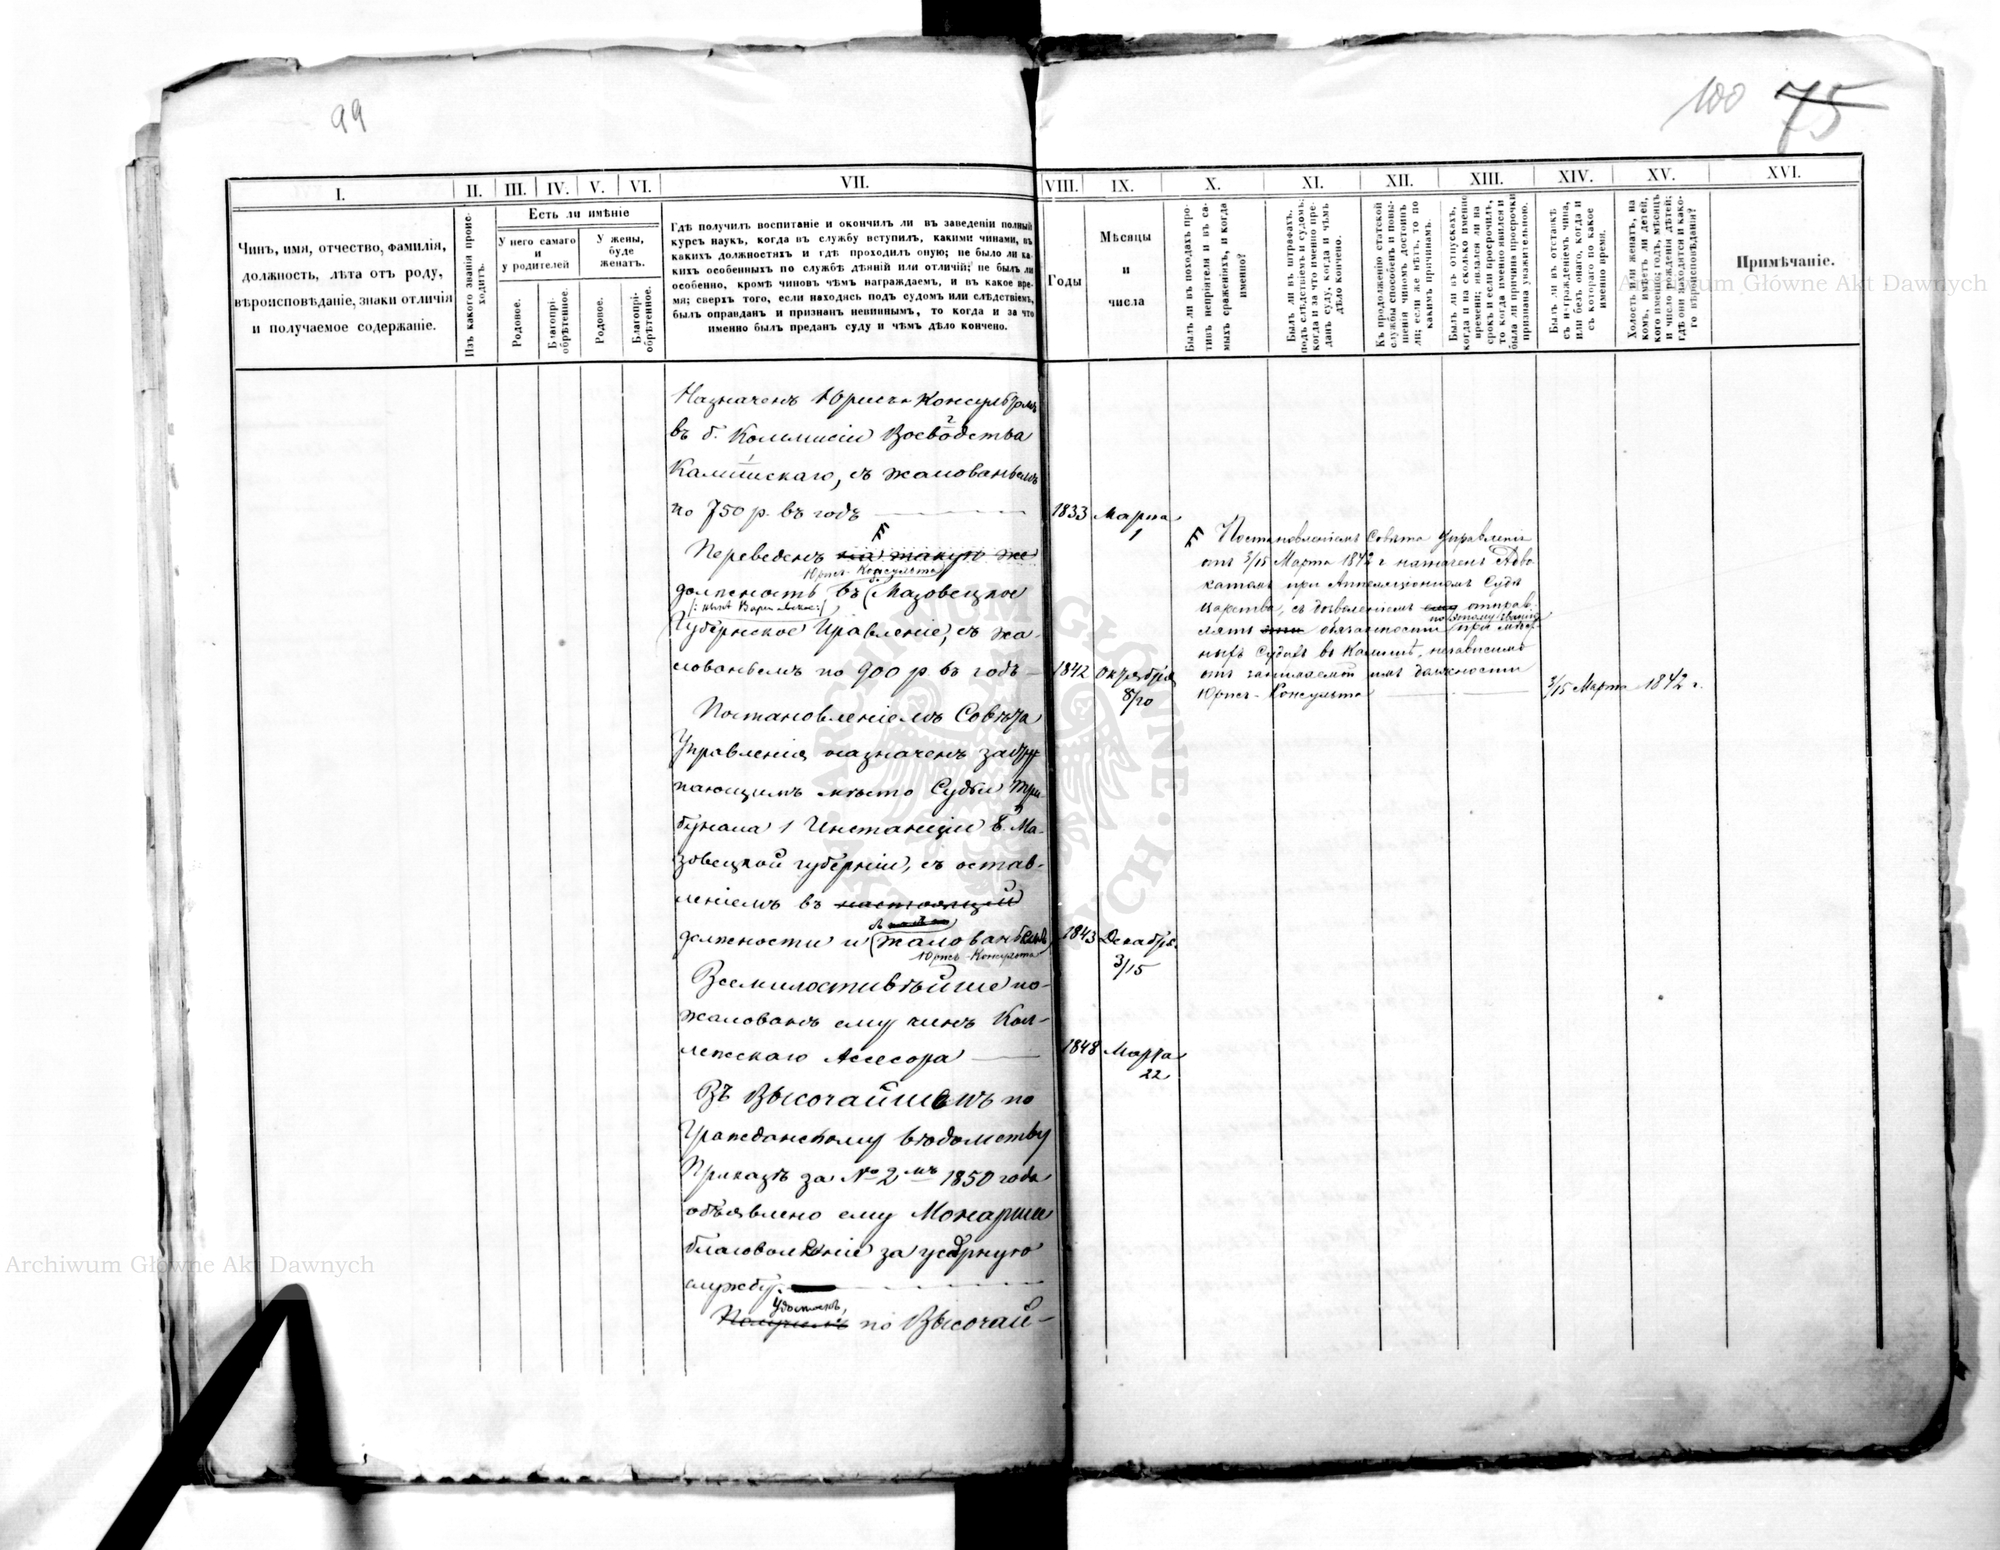 99
100 75
I.
II.
III.
IV.
V.
VI.
VII.
VIII.
IX.
X.
XI.
XII.
XIII.
XIV.
XV.
XVI.
Чинъ, имя, отчество, фамилія,
должность, лѣта отъ роду,
вѣроисповѣданіе, знаки отличія
и получаемое содержаніе.
Изъ какого званія проис-
ходитъ.
Есть ли имѣніе
У него самаго
и
у родителей
У жены,
буде
женатъ.
Родовое.
Благопрі-
обрѣтенное.
Родовое.
Благопрі-
обрѣтенное.
Гдѣ получилъ воспитаніе и окончилъ ли въ заведеніи полный
курсъ наукъ, когда въ службу вступилъ, какими чинами, въ
какихъ должностяхъ и гдѣ проходилъ оную; не было ли ка-
кихъ особенныхъ по службѣ дѣяній или отличій; не былъ ли
особенно, кромѣ чиновъ чѣмъ награждаемъ, и въ какое вре-
мя; сверхъ того, если находясь подъ судомъ или слѣдствіемъ,
былъ оправданъ и признанъ невиннымъ, то когда и за что
именно былъ преданъ суду и чѣмъ дѣло кончено.
Годы
Мѣсяцы
и
числа
Былъ ли въ походахъ про-
тивъ непріятеля и въ са-
мыхъ сраженіяхъ, и когда
именно?
Былъ ли въ штрафахъ,
подъ слѣдствіемъ и судомъ;
когда и за что именно пре-
данъ суду, когда и чѣмъ
дѣло кончено.
Къ продолженію статской
службы способенъ и повы-
шенія чиномъ достоинъ
ли; если же нѣтъ, то по
какимъ причинамъ.
Былъ ли въ отпускахъ,
когда и на сколько именно
времени; являлся ли на
срокъ и если просрочилъ,
то когда именно явился и
была ли причина просрочки
признана уважительною.
Былъ ли въ отставкѣ
съ награжденіемъ чина,
или безъ онаго, когда и
съ котораго по какое
именно время.
Холостъ или женатъ, на
комъ, имѣетъ ли дѣтей,
кого именно; годъ, мѣсяцъ
и число рожденія дѣтей;
гдѣ они находятся и како-
го вѣроисповѣданія?
Примѣчаніе.
Назначенъ Юрисъ-Консультомъ
въ б. Коммисіи Воеводства
Калишскаго, съ жалованьемъ
по 750 р. въ годъ 1833 Марта
1
Переведенъ на такую же
Юрисъ-Консульта
должность въ Мазовецкое
Губернское Правленіе, съ жа-
лованьемъ по 900 р. въ годъ 1842 Октября
8/20
Постановленіемъ Совѣта Управленія
отъ 3/15 Марта 1842 г. назначенъ Адво-
катомъ при Аппеляціонномъ Судѣ
Царства, съ дозволеніемъ ему отправ-
лять обязанности при мѣст-
ныхъ Судахъ въ Калишѣ, независимо
отъ занимаемой имъ должности
Юрисъ-Консульта 3/15 Марта 1842 г.
Постановленіемъ Совѣта
Управленія назначенъ засту-
пающимъ мѣсто Судьи Три-
бунала 1 Инстанціи б. Ма-
зовецкой губерніи, съ остав-
леніемъ въ настоящей
должности и жалованьемъ 1843 Декабря
Юрисъ-Консульта
3/15
Всемилостивѣйше по-
жалованъ ему чинъ Кол-
лежскаго Асесора 1848 Марта
22
Въ Высочайшемъ по
Гражданскому вѣдомству
Приказѣ за № 2мъ 1850 года
объявлено ему Монаршее
благоволеніе за усердную
службу.
Удостоенъ,
по Высочай-
Archiwum Główne Akt Dawnych
Archiwum Główne Akt Dawnych
ARCHIWUM GŁÓWNE AKT DAWNYCH